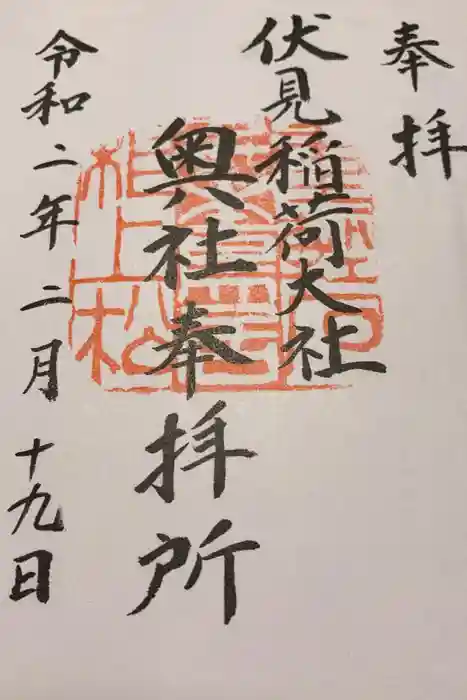 奉拝
伏見稲荷大社
奥社奉拝所
令和二年二月十九日